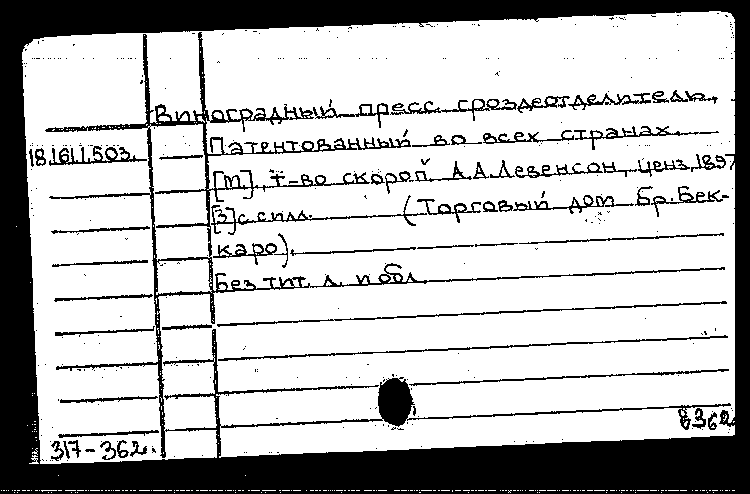 Виноградный пресс гроздеотделитель.
18.161.1.503. Патентованный во всех странах.
[М.], Т-во скороп. А.А.Левенсон, ценз. 1897
[3] с. с илл. (Торговый дом Бр. Бек-
каро).
Без тит. л. и обл.
317-362. 8362